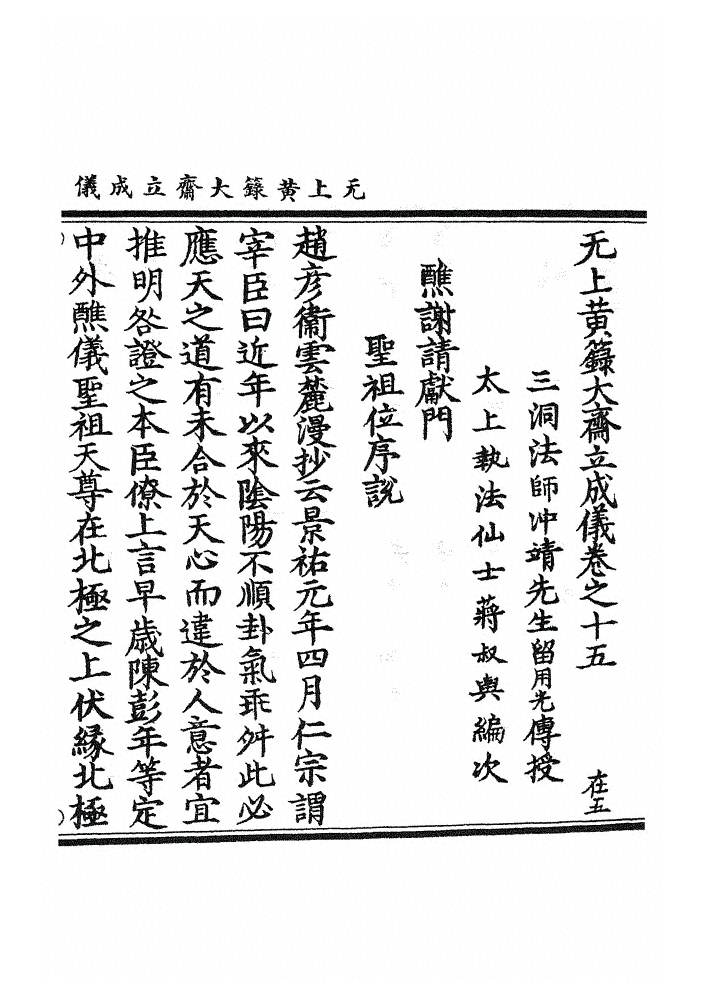 无上黄籙大齋立成儀
无上黄籙大齋立成儀卷之十五
在五
三洞法師冲靖先生留用光傳授
太上執法仙士蔣叔輿編次
醮謝請獻門
聖祖位序說
趙彦衞雲麓漫抄云景祐元年四月仁宗謂
宰臣曰近年以來陰陽不順卦氣乖舛此必
應天之道有未合於天心而違於人意者宜
推明咎證之本臣僚上言早歲陳彭年等定
中外醮儀聖祖天尊在北極之上伏縁北極